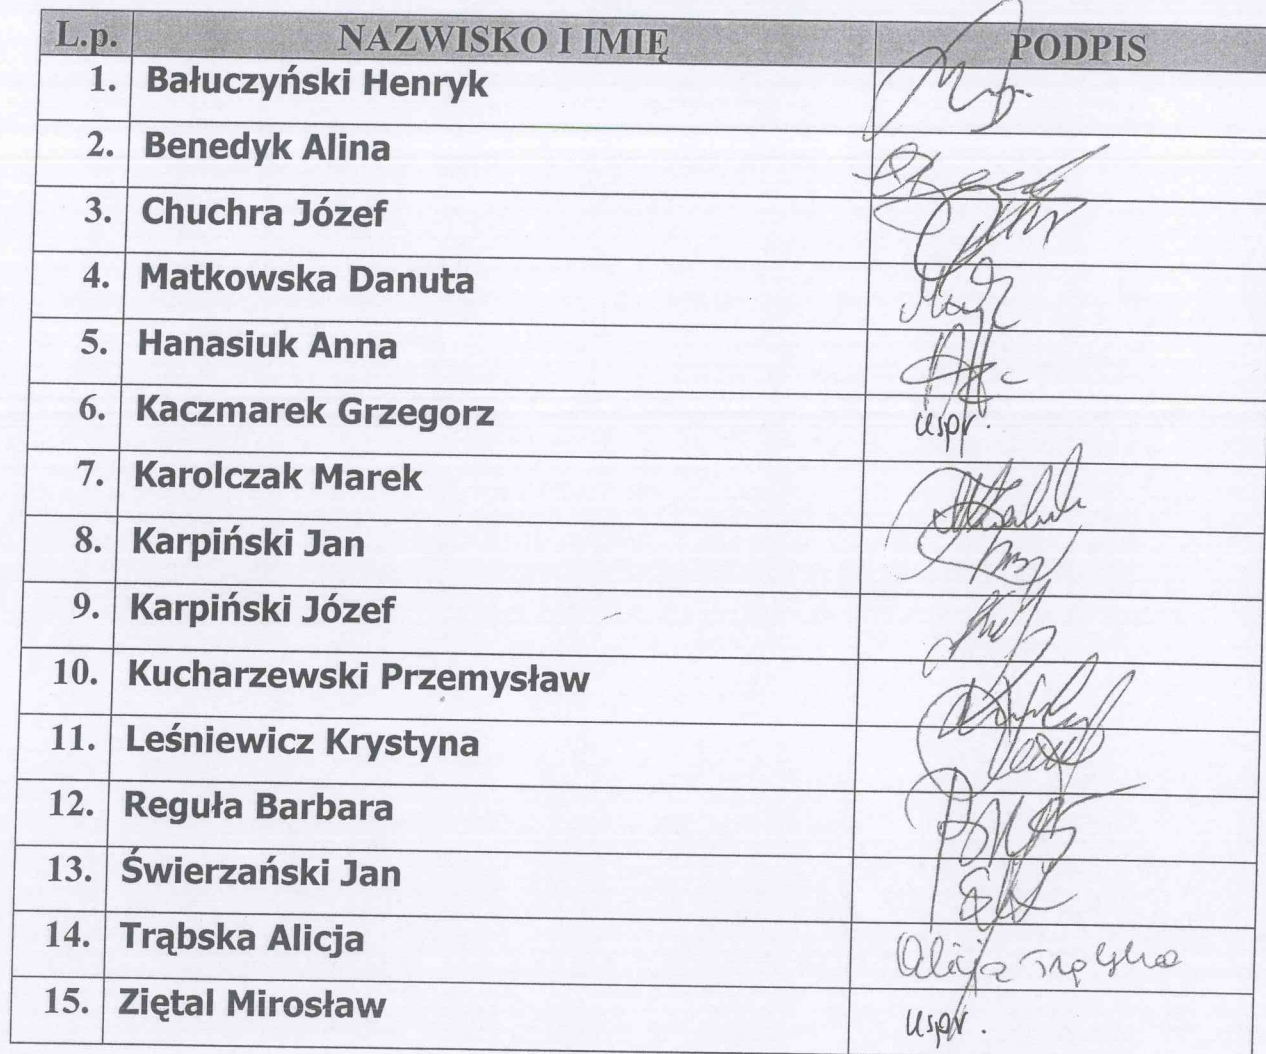 L.p. NAZWISKO I IMIĘ PODPIS
1. Bałuczyński Henryk
2. Benedyk Alina
3. Chuchra Józef
4. Matkowska Danuta
5. Hanasiuk Anna
6. Kaczmarek Grzegorz uspr.
7. Karolczak Marek
8. Karpiński Jan
9. Karpiński Józef
10. Kucharzewski Przemysław
11. Leśniewicz Krystyna
12. Reguła Barbara
13. Świerzański Jan
14. Trąbska Alicja Alicja Trąbska
15. Ziętal Mirosław uspr.